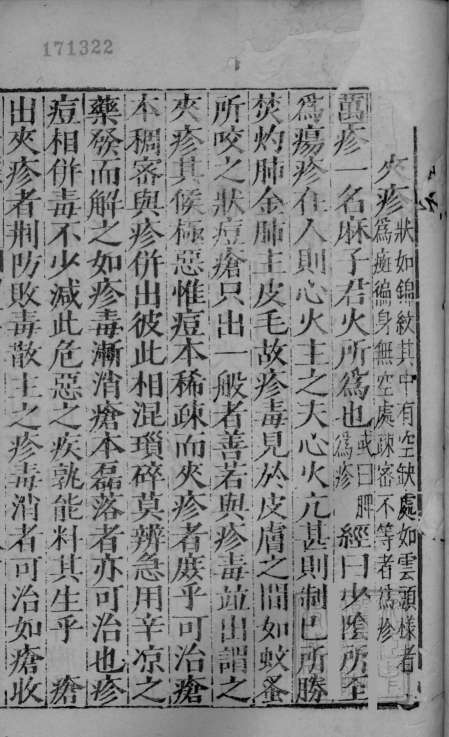 171322
夾疹 狀如錦紋其中有空缺處如雲頭樣者
爲癍徧身無空處疎密不等者爲疹
萬疹一名麻子君火所爲也或曰脾爲疹經曰少隂所至
爲瘍疹在人則心火主之夫心火亢甚則制巳所勝
焚灼肺金肺主皮毛故疹毒見於皮膚之間如蚊蚤
所咬之狀痘瘡只出一般者善若與疹毒並出謂之
夾疹其候極惡惟痘本稀疎而夾疹者庶乎可治瘡
本稠密與疹併出彼此相混瑣碎莫辨急用辛凉之
藥發而解之如疹毒漸消瘡本磊落者亦可治也疹
痘相併毒不少減此危惡之疾孰能料其生乎 瘡
出夾疹者荆防敗毒散主之疹毒消者可治如瘡收